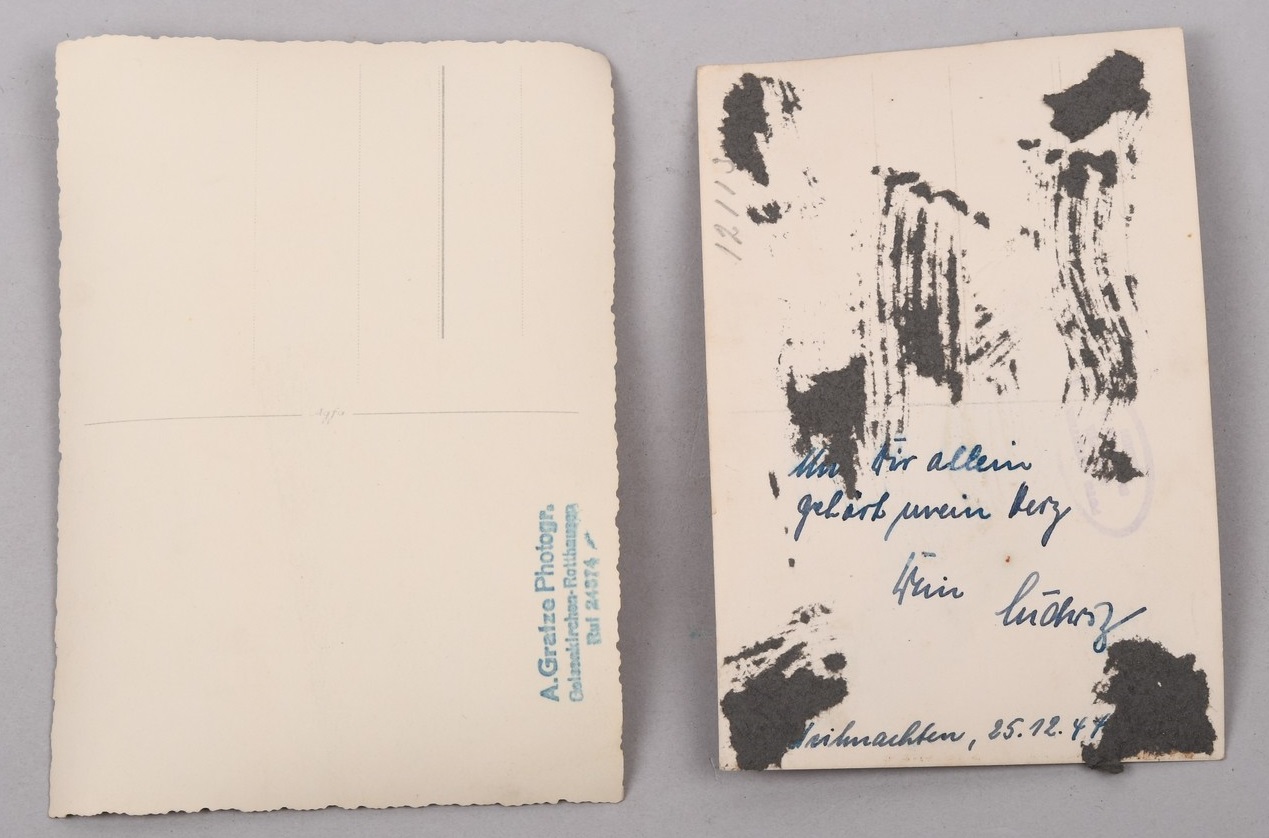 A. Gratze Photogr.
Gelsenkirchen-Rotthausen
Ruf 24874
1211
Dir allein
gehört mein Herz
Dein
Ludwig
Weihnachten, 25.12.4